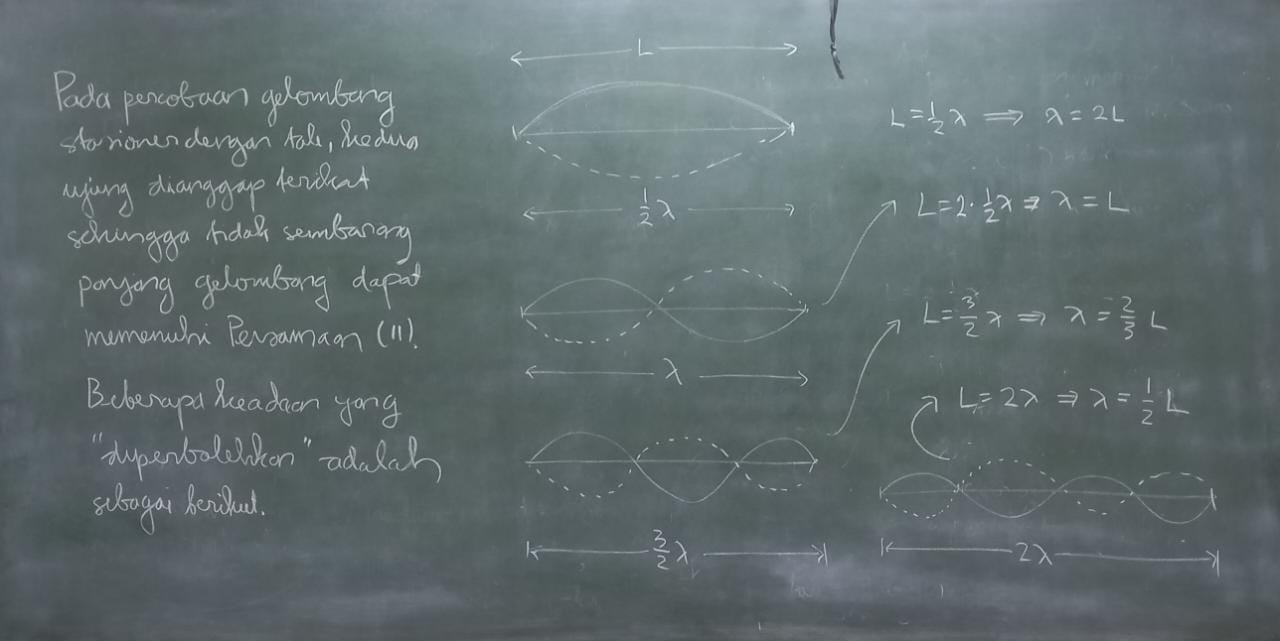 Pada percobaan gelombang
stasioner dengan tali, kedua
ujung dianggap terikat
sehingga tidak sembarang
panjang gelombang dapat
memenuhi Persamaan (11).
Beberapa keadaan yang
"diperbolehkan" adalah
sebagai berikut.
L
1/2 λ
λ
3/2 λ
L = 1/2 λ ⇒ λ = 2L
L = 2 · 1/2 λ ⇒ λ = L
L = 3/2 λ ⇒ λ = 2/3 L
L = 2λ ⇒ λ = 1/2 L
2λ